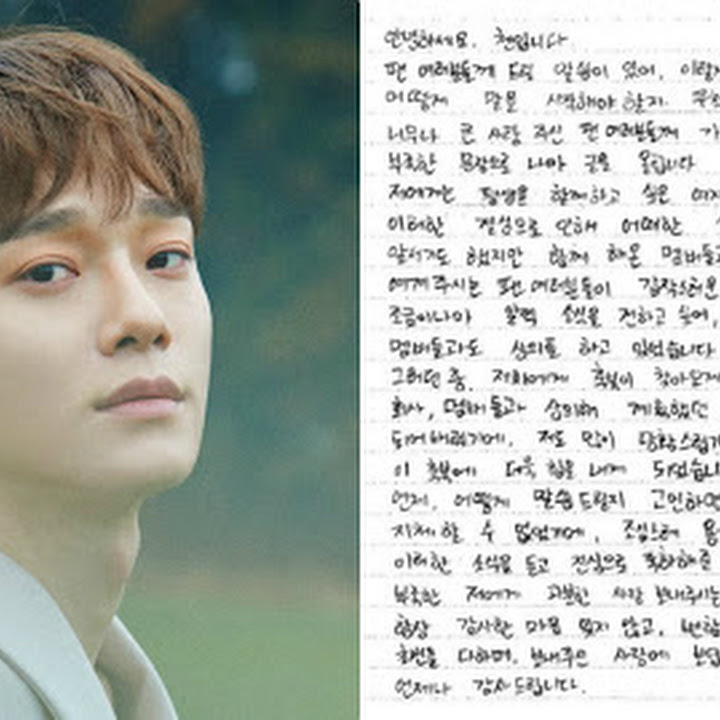 안녕하세요. 첸입니다.
팬 여러분들께 드릴 말씀이 있어, 이렇게
어떻게 말을 시작해야 할지 무척
너무나 큰 사랑 주신 팬 여러분들께 가
부족한 문장으로 나마 글을 올립니다
저에게는 평생을 함께하고 싶은 여자
이러한 결심으로 인해 어떠한
앞서기도 했지만 함께 해온 멤버들과
에게주시는 팬 여러분들이 갑작스러운
조금이나마 일찍 소식을 전하고 싶어,
멤버들과도 상의를 하고 있었습니다
그러던 중, 저희에게 축복이 찾아오게
회사, 멤버들과 상의해 계획했던
되어버렸기에, 저도 많이 당황스럽기
이 축복에 더욱 힘을 내게 되었습니
언제, 어떻게 말씀드릴지 고민하며
지체할 수 없었기에, 조심스레 용
이러한 소식을 듣고 진심으로 축하해준
부족한 저에게 과분한 사랑 보내주시는
항상 감사한 마음 잊지 않고, 변함
최선을 다하며, 보내주신 사랑에 보답
언제나 감사드립니다.